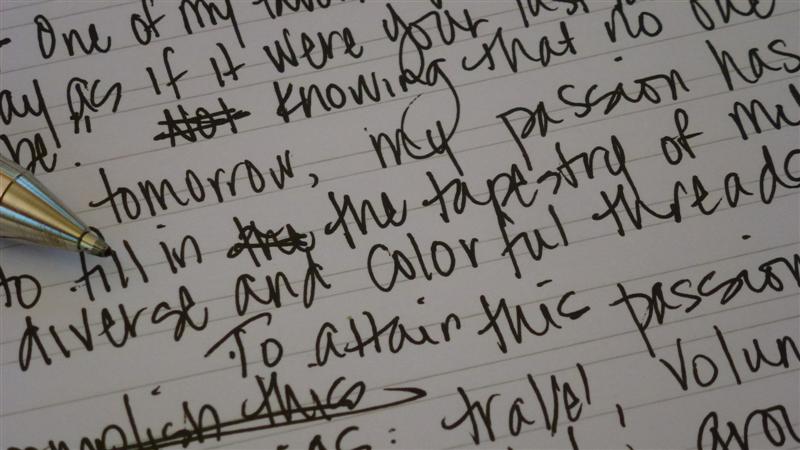 - One of my
ay as if it were your last
be." Not Knowing that no one
tomorrow, my passion has
to fill in the the tapestry of my
diverse and colorful threads
To attain this passion
this
as: travel, volun